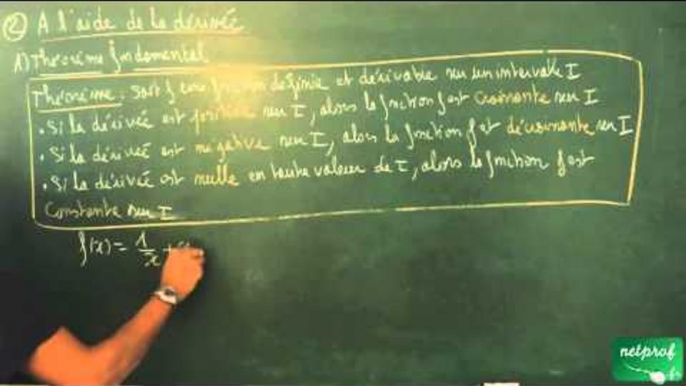 ② A l'aide de la dérivée
A) Théorème fondamental
Théorème : Soit f une fonction définie et dérivable sur un intervalle I
• Si la dérivée est positive sur I, alors la fonction f est croissante sur I
• Si la dérivée est négative sur I, alors la fonction f est décroissante sur I
• Si la dérivée est nulle en toute valeur de I, alors la fonction f est
constante sur I
f(x) = 1/x +
netprof
.fr